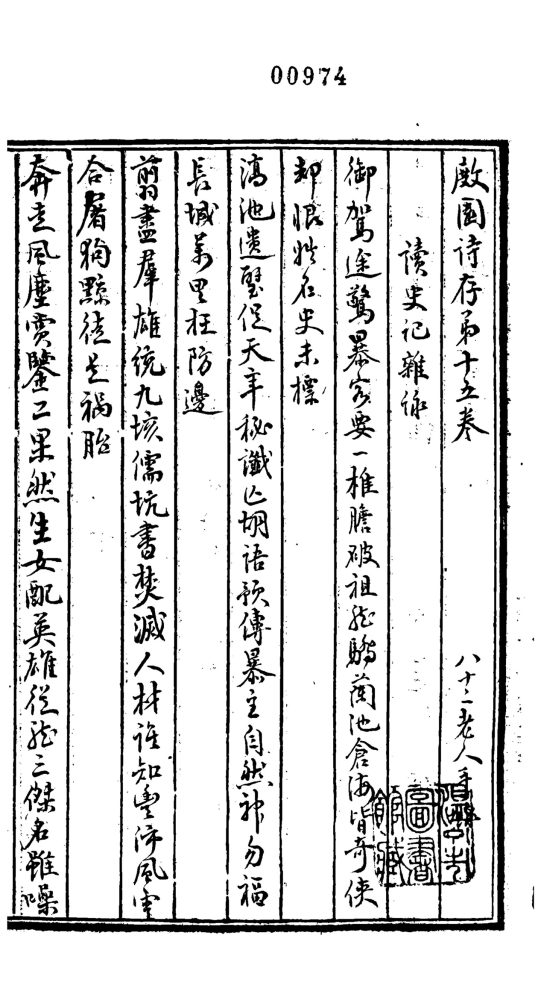 00974
敝園詩存第十五卷
八十二老人手
讀史記雜詠
御駕途驚暴客要一椎膽破祖龍驕蘭池倉海皆奇俠
却恨姓名史未標
滈池遺璧促天年秘讖亡胡語預傳暴主自然神勿福
長城萬里枉防邊
翦盡羣雄統九垓儒坑書焚滅人材誰知豐沛風雲
合屠狗黥徒是禍胎
奔走風塵賞鑒工果然生女配英雄從龍三傑名雖噪
圖書館藏